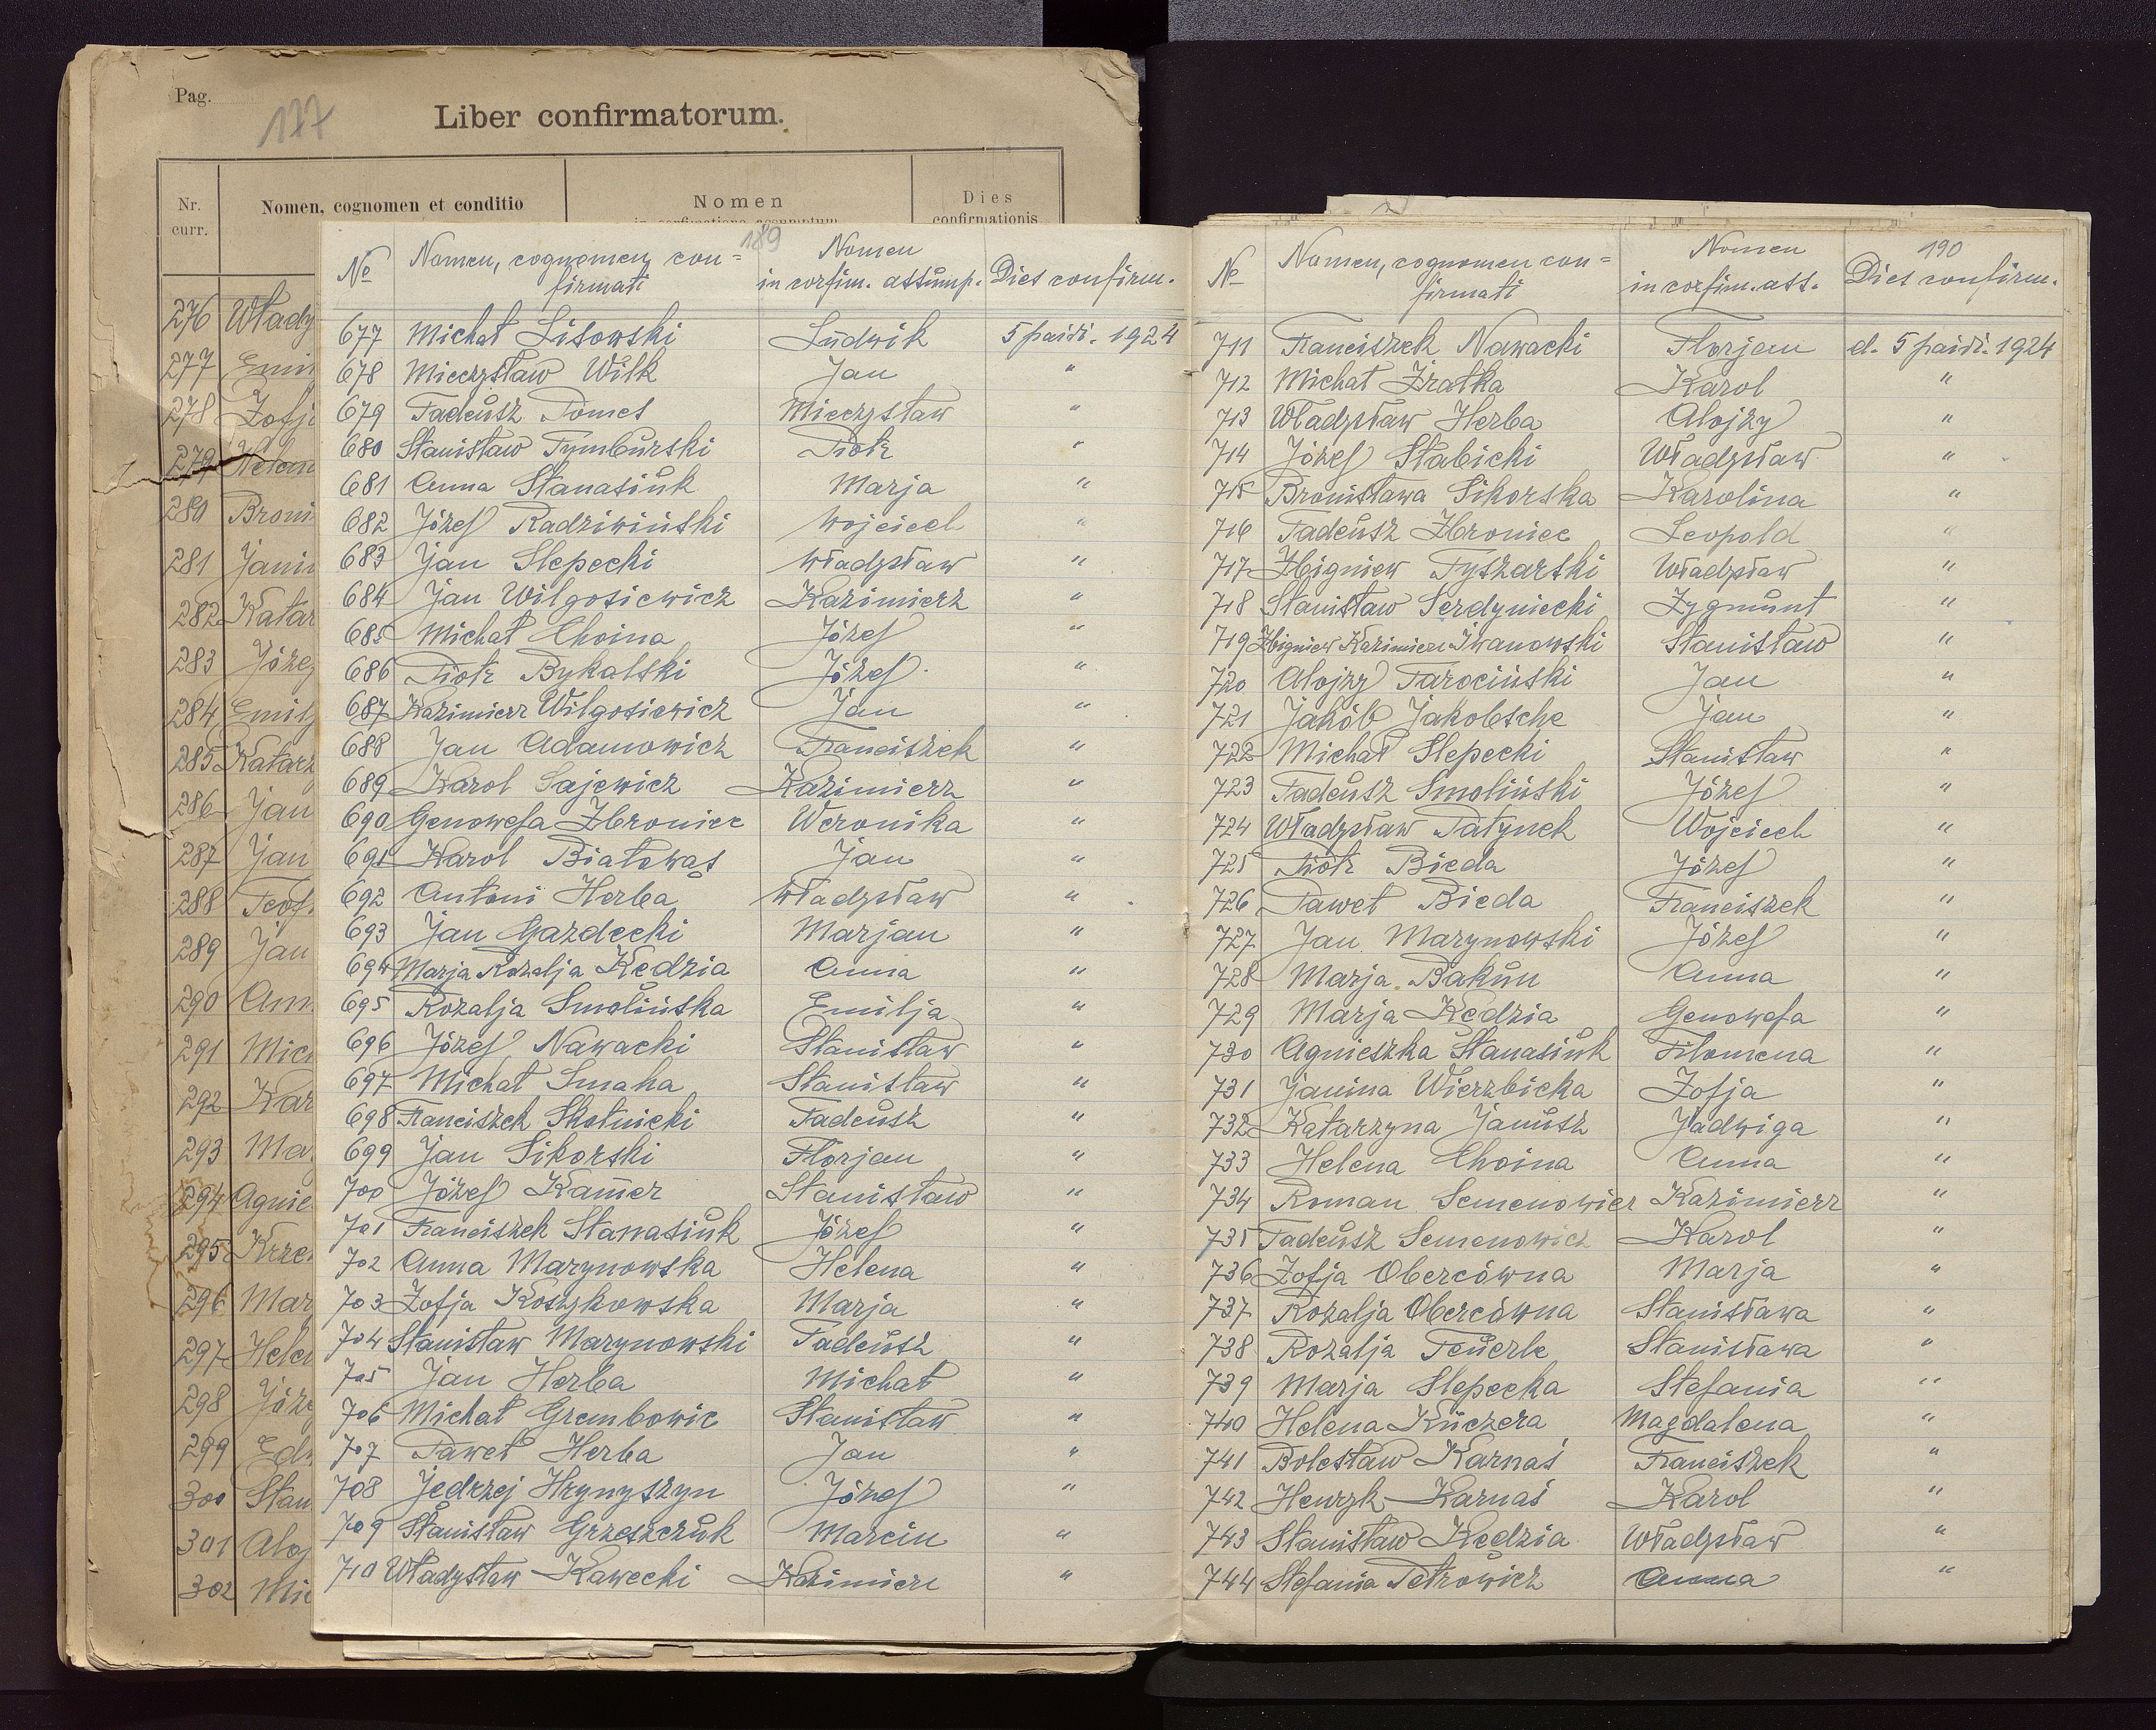 Pag.
177
Liber confirmatorum.
Nr. curr.
Nomen, cognomen et conditio
Nomen
Dies
confirmationis
276 Włady
277 Emi
278 Zofj
279 Helen
280 Broni
281 Jani
282 Katar
283 Józe
284 Emil
285 Katarz
286 Jan
287 Jan
288 Teof.
289 Jan
290 Ann
291 Mic
292 Kar
293 Mar
294 Agnie
295 Krze
296 Mar
297 Hele
298 Józe
299 Edw
300 Stan
301 Aloj
302 Mic
189
№ Nomen, cognomen con= Nomen
firmati in confim. assump. Dies confirm.
677 Michał Lisowski Ludwik 5 paidź. 1924
678 Mieczysław Wilk Jan "
679 Tadeusz Pomes Mieczysław "
680 Stanisław Tymburski Piotr "
681 Anna Stanasiuk Marja "
682 Józef Radziwiński Wojciech "
683 Jan Slepecki Władysław "
684 Jan Wilgosiewicz Kazimierz "
685 Michał Choina Józef "
686 Piotr Bykalski Józef "
687 Kazimierz Wilgosiewicz Jan "
688 Jan Adamowicz Franciszek "
689 Karol Sajewicz Kazimierz "
690 Genowefa Zbroniec Weronika "
691 Karol Białowąs Jan "
692 Antoni Herba Władysław "
693 Jan Gazdecki Marjan "
694 Marja Rozalja Kędzia Anna "
695 Rozalja Smolińska Emilja "
696 Józef Nawacki Stanisław "
697 Michał Smaha Stanisław "
698 Franciszek Skotnicki Tadeusz "
699 Jan Sikorski Florjan "
700 Józef Kamer Stanisław "
701 Franciszek Stanasiuk Józef "
702 Anna Marynowska Helena "
703 Zofja Koszykowska Marja "
704 Stanisław Marynowski Tadeusz "
705 Jan Herba Michał "
706 Michał Grembowic Stanisław "
707 Paweł Herba Jan "
708 Jędrzej Hrynyszyn Józef "
709 Stanisław Grzeszczuk Marcin "
710 Władysław Kawecki Kazimierz "
190
№ Nomen, cognomen con= Nomen
firmati in confim. ass. Dies confirm.
711 Franciszek Nawacki Florjan d. 5 paidź. 1924
712 Michał Źrałka Karol "
713 Władysław Herba Alojzy "
714 Józef Słabicki Władysław "
715 Bronisława Sikorska Karolina "
716 Tadeusz Zbroniec Leopold "
717 Zbigniew Tyszarski Władysław "
718 Stanisław Serdyniecki Zygmunt "
719 Zbigniew Kazimierz Iwanowski Stanisław "
720 Alojzy Tarociński Jan "
721 Jakób Jakobsche Jan "
722 Michał Slepecki Stanisław "
723 Tadeusz Smoliński Józef "
724 Władysław Patynek Wojciech "
725 Piotr Bieda Józef "
726 Paweł Bieda Franciszek "
727 Jan Marynowski Józef "
728 Marja Bakun Anna "
729 Marja Kędzia Genowefa "
730 Agnieszka Stanasiuk Filomena "
731 Janina Wierzbicka Zofja "
732 Katarzyna Janusz Jadwiga "
733 Helena Choina Anna "
734 Roman Semenowicz Kazimierz "
735 Tadeusz Semenowicz Karol "
736 Zofja Obercówna Marja "
737 Rozalja Obercówna Stanisława "
738 Rozalja Feuerle Stanisława "
739 Marja Slepecka Stefania "
740 Helena Kuczera Magdalena "
741 Bolesław Karnaś Franciszek "
742 Henryk Karnaś Karol "
743 Stanisław Kędzia Władysław "
744 Stefania Petrowicz Anna "